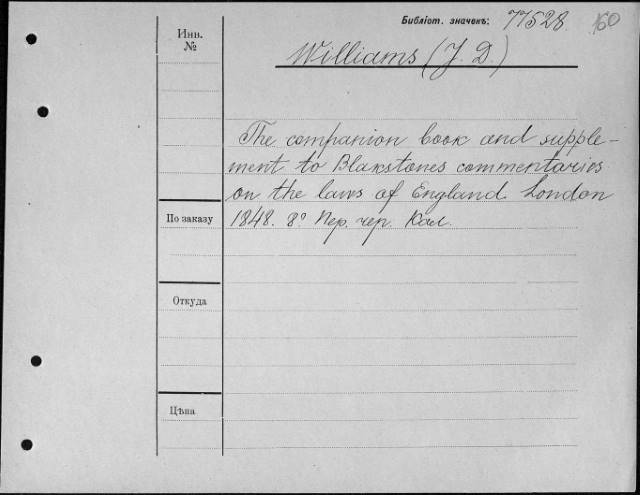 Библіот. значекъ: 77528 160
Инв.
№
Williams (J. D.)
The companion book and supple-
ment to Blakstones commentaries
on the laws of England. London
1848. 8° Пер. чер. Кол.
По заказу
Откуда
Цѣна